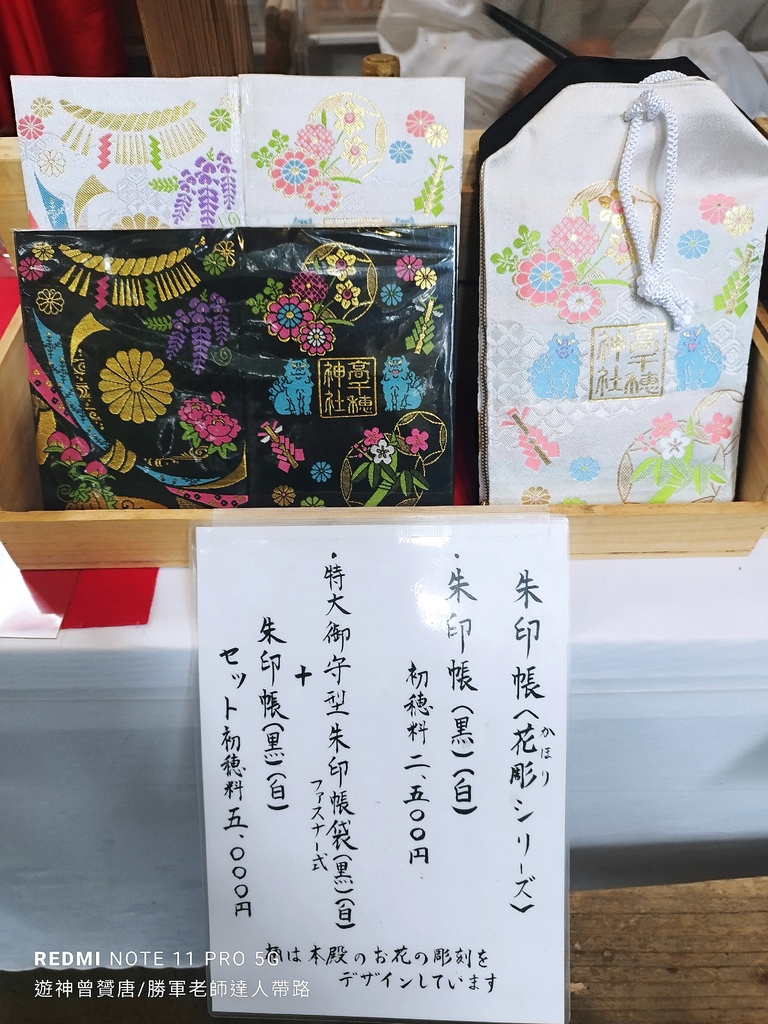 高千穂
神社
高千穂
神社
朱印帳〈花彫シリーズ〉
かほり
・朱印帳(黒)(白)
初穂料 二、五〇〇円
・特大御守型朱印帳袋(黒)(白)
ファスナー式
+
朱印帳(黒)(白)
セット初穂料 五、〇〇〇円
は本殿のお花の彫刻を
デザインしています
REDMI NOTE 11 PRO 5G
遊神曾贇唐/勝軍老師達人帶路